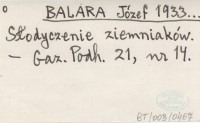 ° BALARA Józef 1933...
Słodyczenie ziemniaków.
— Gaz. Podh. 21, nr 14.
BT/003/0467